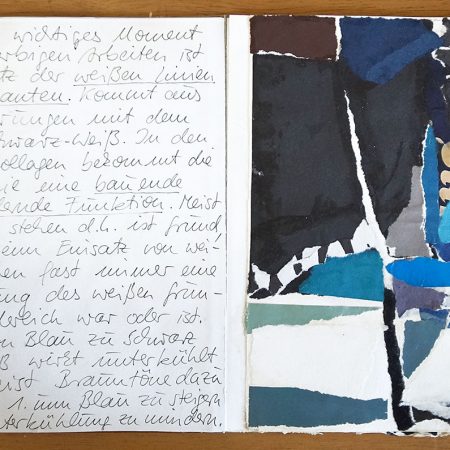 wichtiges Moment
farbigen Arbeiten ist
tz der weißen Linien
anten. Kommt aus
rungen mit dem
hwarz-Weiß. In den
ollagen bekommt die
ie eine bauende
lende Funktion. Meist
stehen d.h. ist grund
einn Einsatz von wei-
en fast immer eine
ng des weißen Grun-
dereich war oder ist.
n Blau zu Schwarz
ß wirkt unterkühlt
ist Brauntöne dazu
1. um Blau zu steigern
terkühlung zu mindern.